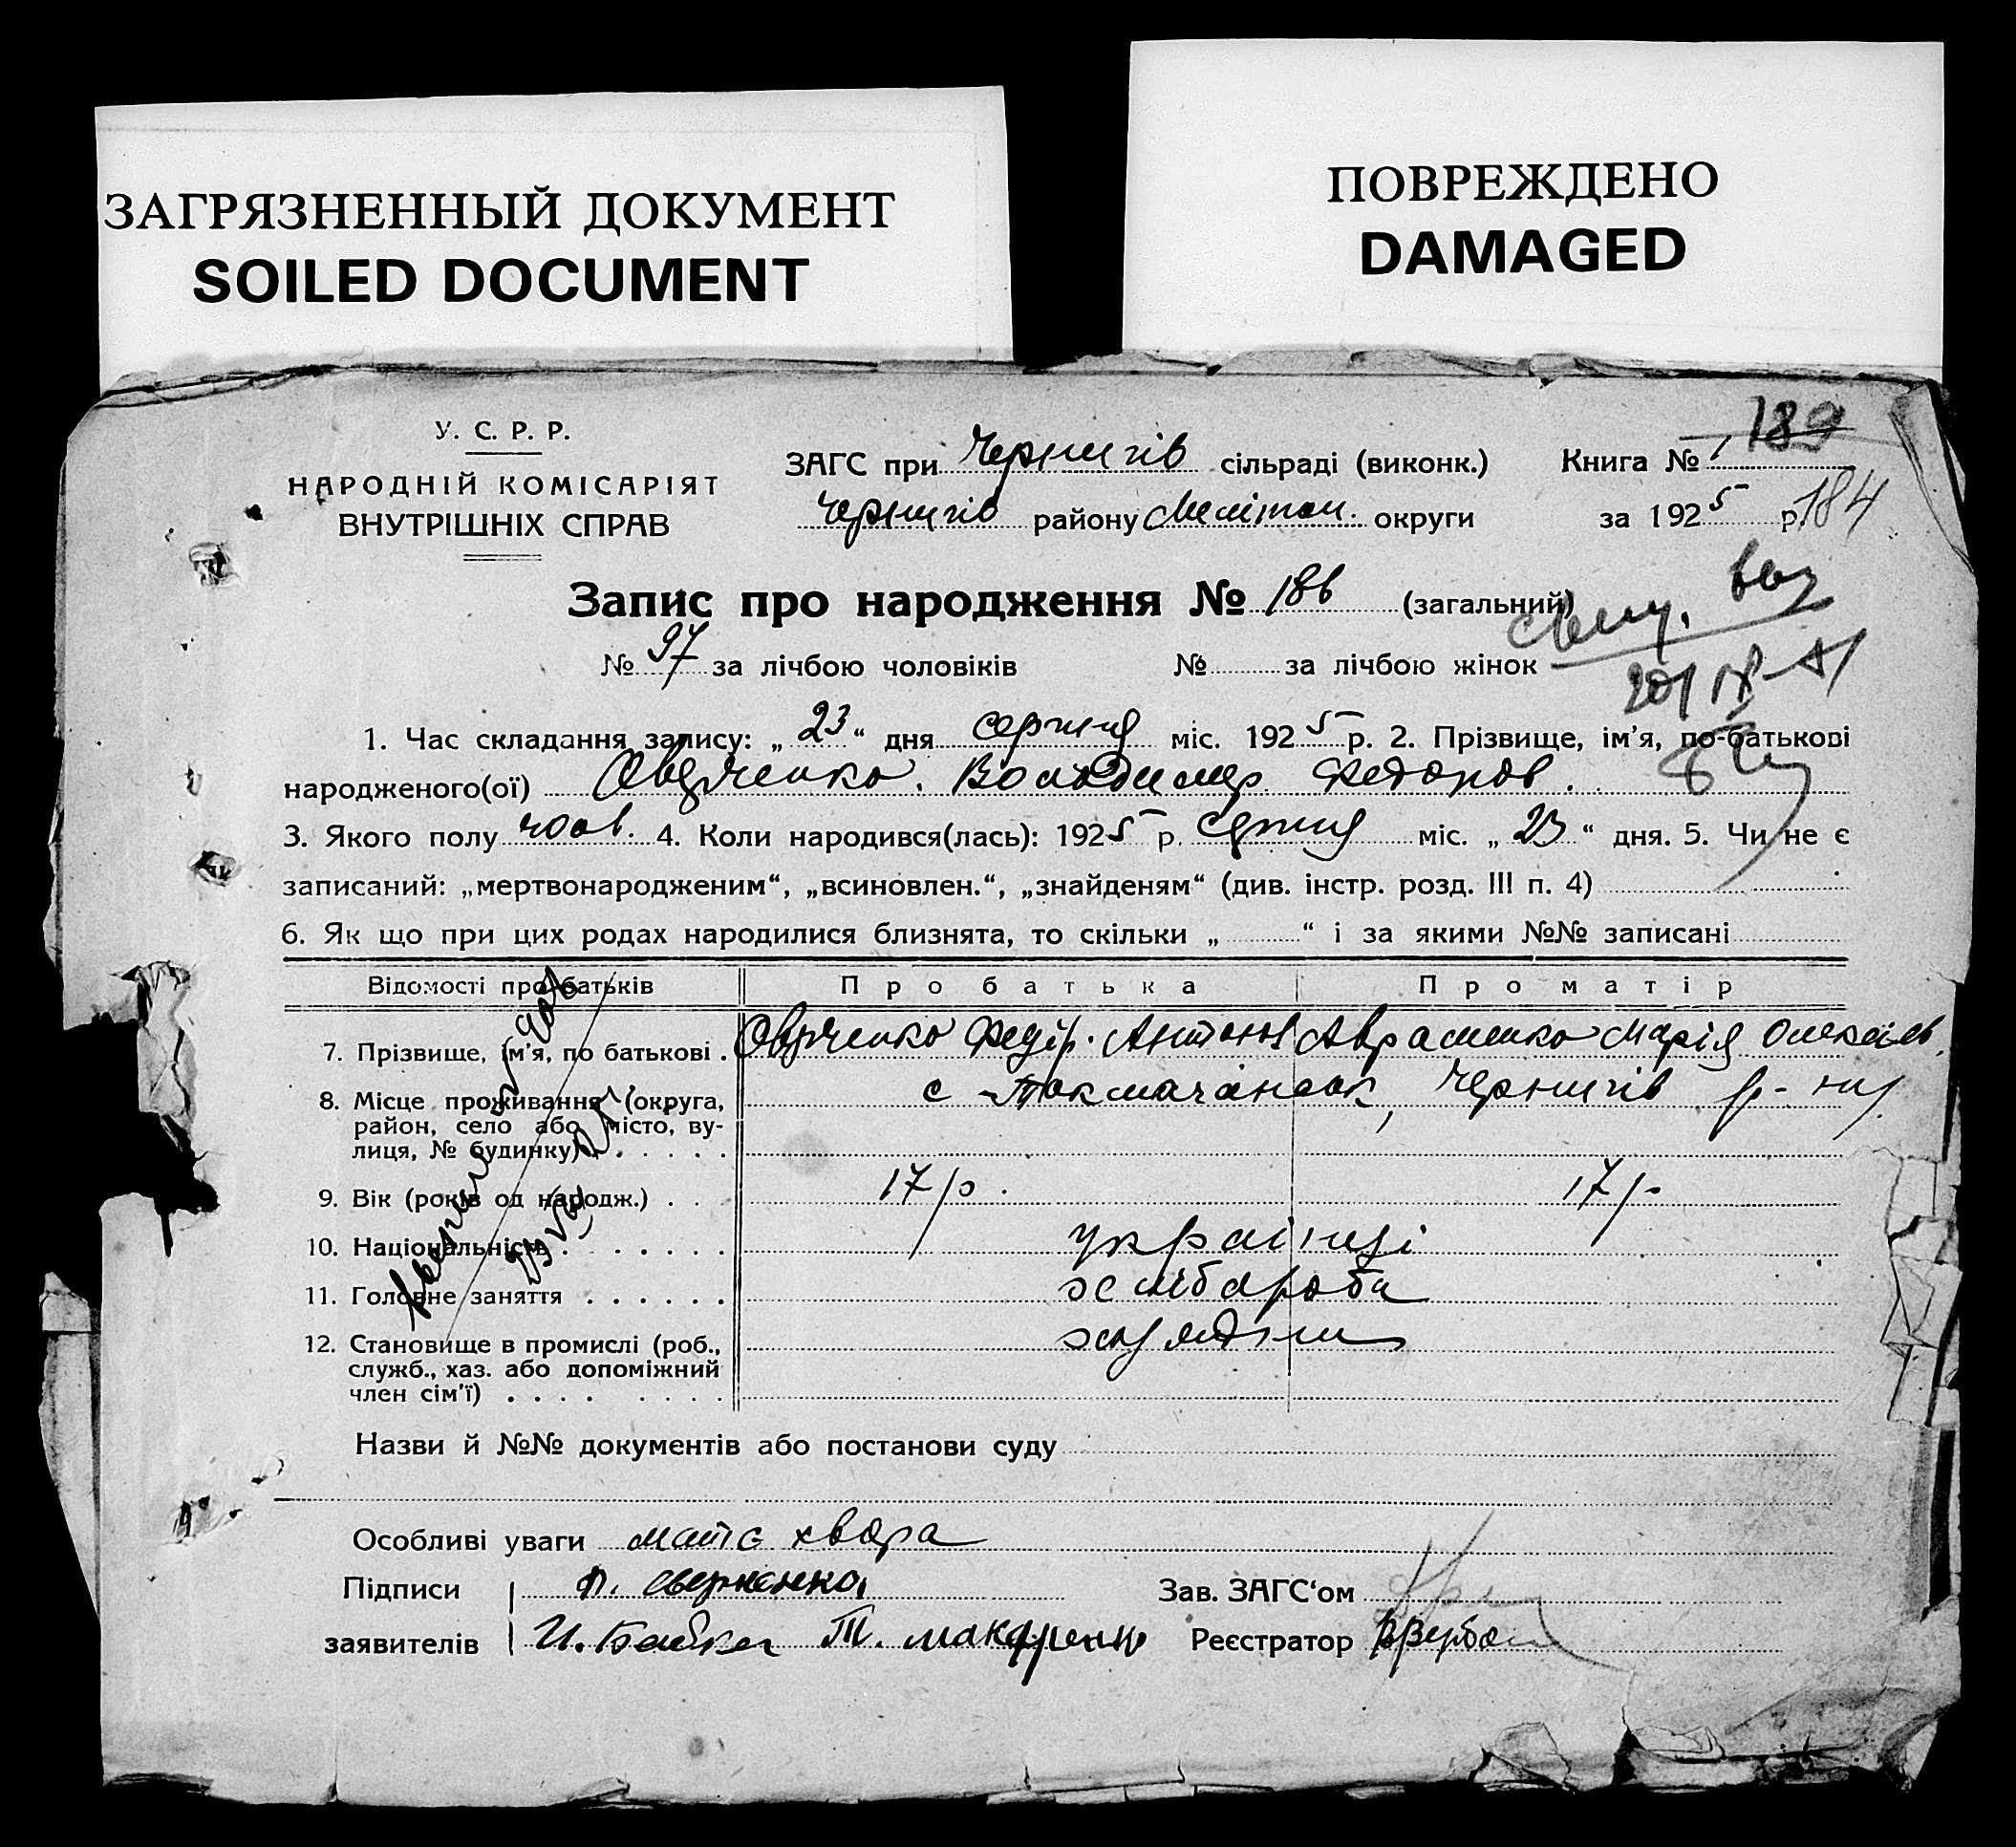 ЗАГРЯЗНЕННЫЙ ДОКУМЕНТ
SOILED DOCUMENT
ПОВРЕЖДЕНО
DAMAGED
У. С. Р. Р.
НАРОДНІЙ КОМІСАРІЯТ
ВНУТРІШНІХ СПРАВ
ЗАГС при Чернигів сільраді (виконк.)
Чернигів району Меліտоп. округи
Книга № 1 189
за 1925 р. 184
Запис про народження № 186 (загальний)
№ 97 за лічбою чоловіків № за лічбою жінок
1. Час складання запису: „23“ дня серпня міс. 1925 р. 2. Прізвище, ім'я, по-батькові
народженого(ої) Володимир Федоров.
3. Якого полу чолов. 4. Коли народився(лась): 1925 р. серпня міс. „23“ дня. 5. Чи не є
записаний: „мертвонародженим“, „всиновлен.“, „знайденям“ (див. інстр. розд. III п. 4)
6. Як що при цих родах народилися близнята, то скільки „ “ і за якими №№ записані
Відомості про батьків Про батька Про матір
7. Прізвище, ім'я, по батькові . Федір. Антонов Авраменко Марія Олексан.
8. Місце проживання (округа, с Токмачанськ, Чернигів р-ну
район, село або місто, ву-
лиця, № будинку) . . . . . .
9. Вік (років од народж.) . . . 17 р. 17 р.
10. Національність . . . . . . . українці
11. Головне заняття . . . . . . хлібороби
12. Становище в промислі (роб.,
служб., хаз. або допоміжний
член сім'ї) . . . . . . . .
Назви й №№ документів або постанови суду
Особливі уваги мати хвора
Підписи Зав. ЗАГС‘ом
заявителів И. Бабка Т. Реєстратор